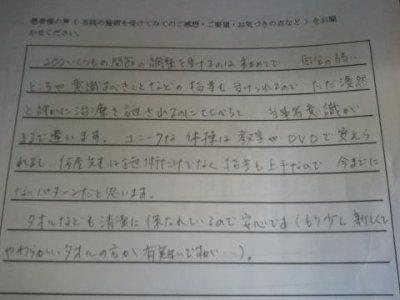 患者様の声（当院の施術を受けてみてのご感想・ご要望・お気づきの点など）をお聞
かせください。
200いくつもの関節の調整を受けるのは初めてで、自分の弱い
ところや意識すべきことなどの指導も受けられるので、ただ漫然
と誰かに治療を施されるのにくらべると、当事者意識が
まるで違います。ユニークな体操は教室やDVDで覚えら
れますし、先生は施術だけでなく指導も上手なので、今までに
ないパターンだと思います。
タオルなども清潔に保たれているので安心です（もう少し新しくて
やわらかいタオルの方が有難いですが…）。